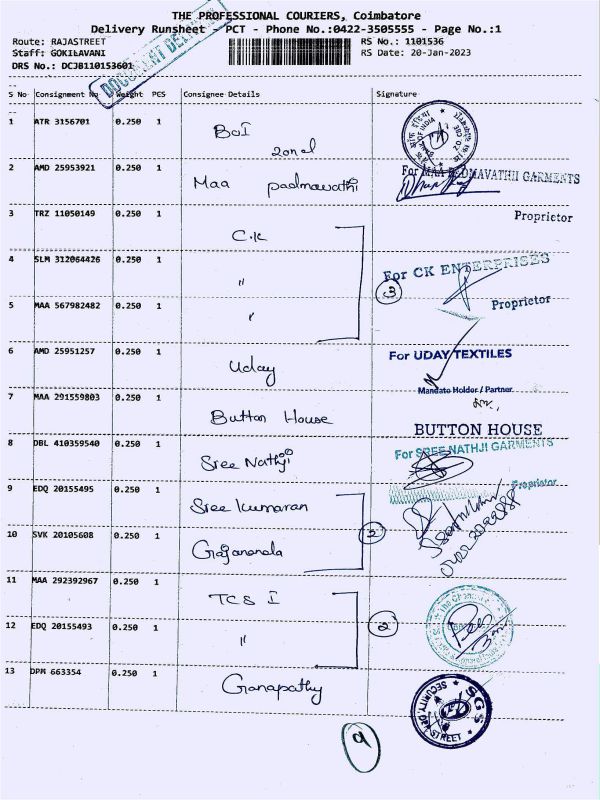 THE PROFESSIONAL COURIERS, Coimbatore
Delivery Runsheet - PCT - Phone No.:0422-3505555 - Page No.:1
Route: RAJASTREET RS No.: 1101536
Staff: GOKILAVANI RS Date: 20-Jan-2023
DRS No.: DCJB1101153601
DOCUMENT
S No Consignment No Weight PCS Consignee Details Signature
1 ATR 3156701 0.250 1 BoI
zonal
2 AMD 25953921 0.250 1 Maa padmavathi For MAA PADMAVATHI GARMENTS
Proprietor
3 TRZ 11050149 0.250 1 C.K
4 SLM 312064426 0.250 1 " For CK ENTERPRISES
3
Proprietor
5 MAA 567982482 0.250 1 "
6 AMD 25951257 0.250 1 Uday For UDAY TEXTILES
Mandate Holder / Partner
7 MAA 291559803 0.250 1 Button House BUTTON HOUSE
8 DBL 410359540 0.250 1 Sree Nathji For SREE NATHJI GARMENTS
Proprietor
9 EDQ 20155495 0.250 1 Sree Kumaran
2
10 SVK 20105608 0.250 1 Gajananda
11 MAA 292392967 0.250 1 TCS I
2
12 EDQ 20155493 0.250 1 "
13 DPM 663354 0.250 1 Ganapathy SGS
SECURITY
STREET
9